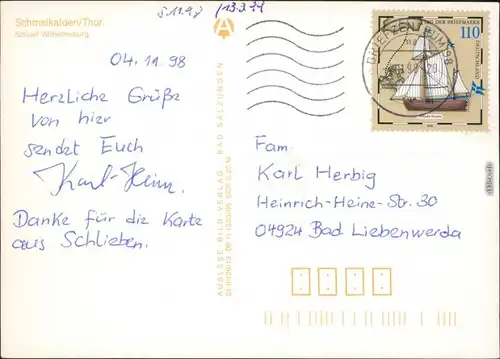 Schmalkalden/Thür.
Schloß Wilhelmsburg
8.11.98
04.11.98
Herzliche Grüße
von hier
sendet Euch
Karl-Heinz.
Danke für die Karte
aus Schlieben.
AUSLESE-BILD-VERLAG · BAD SALZUNGEN
TAG DER BRIEFMARKE
110
DEUTSCHLAND
Fam.
Karl Herbig
Heinrich-Heine-Str. 30
04924 Bad Liebenwerda